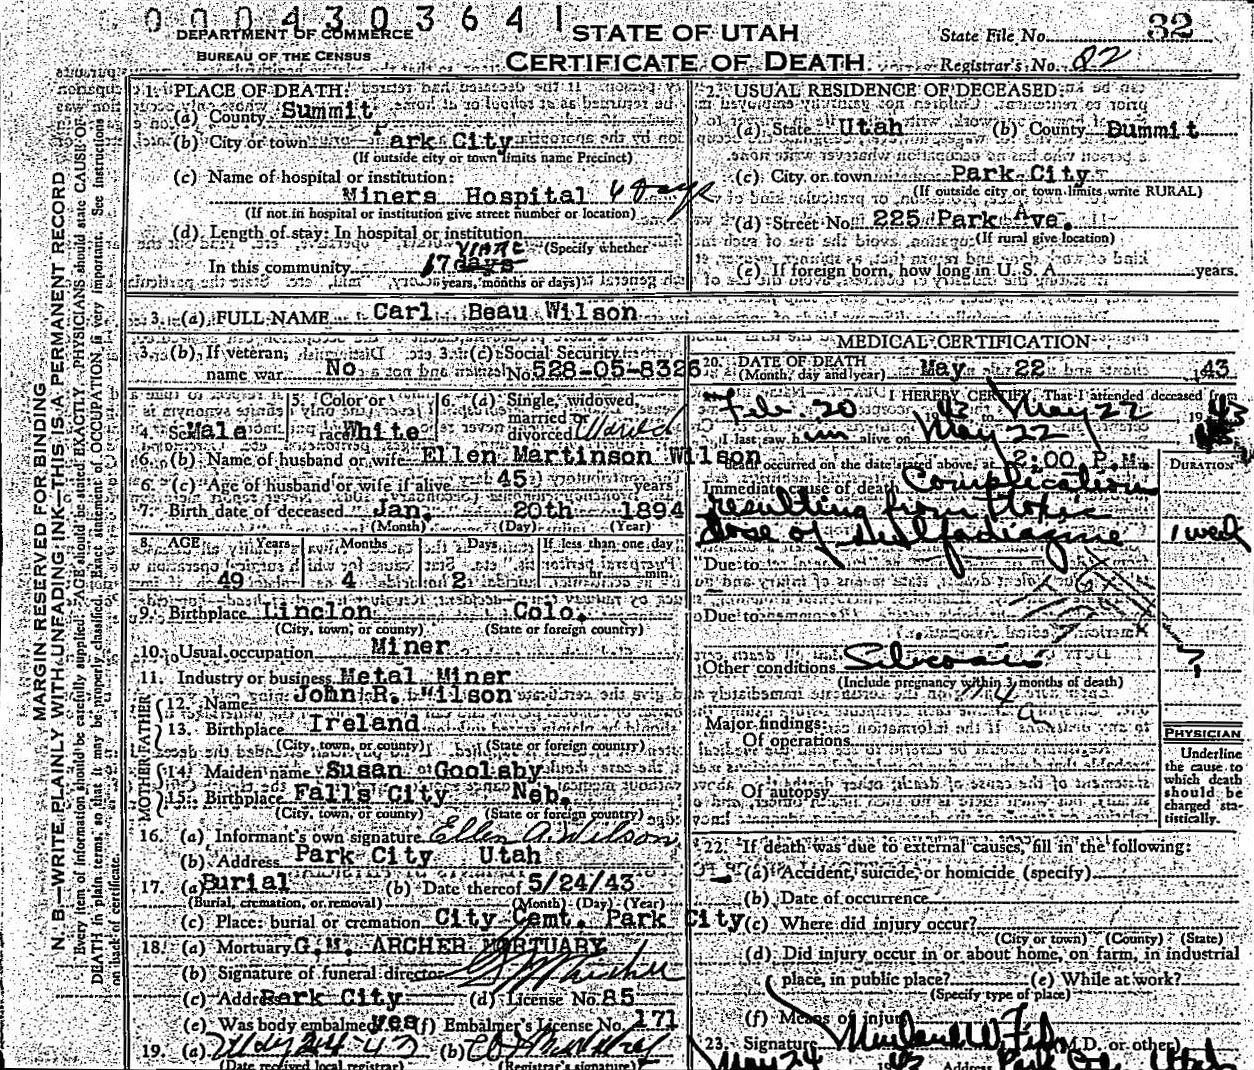 0004303641
DEPARTMENT OF COMMERCE
BUREAU OF THE CENSUS
STATE OF UTAH
CERTIFICATE OF DEATH
State File No. 32
Registrar's No. 82
MARGIN RESERVED FOR BINDING
N. B.—WRITE PLAINLY WITH UNFADING INK—THIS IS A PERMANENT RECORD
Every item of information should be carefully supplied. AGE should be stated EXACTLY. PHYSICIANS should state CAUSE OF
DEATH in plain terms, so that it may be properly classified. Exact statement of OCCUPATION is very important. See instructions
on back of certificate.
1. PLACE OF DEATH:
(a) County Summit
(b) City or town Park City
(If outside city or town limits name Precinct)
(c) Name of hospital or institution:
Miners Hospital 6 Days
(If not in hospital or institution give street number or location)
(d) Length of stay: In hospital or institution
(Specify whether
In this community 17 days years
years, months or days)
2. USUAL RESIDENCE OF DECEASED:
(a) State Utah (b) County Dummit
(c) City or town Park City
(If outside city or town limits write RURAL)
(d) Street No. 225 Park Ave.
(If rural give location)
(e) If foreign born, how long in U. S. A. years.
3. (a) FULL NAME Carl Beau Wilson
3. (b) If veteran, name war No
3. (c) Social Security No. 528-05-8326
4. Sex Male
5. Color or race White
6. (a) Single, widowed, married or divorced Maried
6. (b) Name of husband or wife Ellen Martinson Wilson
6. (c) Age of husband or wife if alive 45 years
7. Birth date of deceased Jan. 20th 1894
(Month) (Day) (Year)
8. AGE Years Months Days If less than one day
49 4 2 hr. min.
9. Birthplace Linclon Colo.
(City, town, or county) (State or foreign country)
10. Usual occupation Miner
11. Industry or business Metal Miner
FATHER
12. Name John R. Wilson
13. Birthplace Ireland
(City, town, or county) (State or foreign country)
MOTHER
14. Maiden name Susan Goolsby
15. Birthplace Falls City Neb.
(City, town, or county) (State or foreign country)
16. (a) Informant's own signature Ellen A. Wilson
(b) Address Park City Utah
17. (a) Burial (b) Date thereof 5/24/43
(Burial, cremation, or removal) (Month) (Day) (Year)
(c) Place: burial or cremation City Cemt. Park City
18. (a) Mortuary G.M. ARCHER MORTUARY
(b) Signature of funeral director
(c) Address Park City (d) License No. 85
(e) Was body embalmed yes (f) Embalmer's License No. 171
19. (a) May 24-43 (b)
(Date received local registrar) (Registrar's signature)
MEDICAL CERTIFICATION
20. DATE OF DEATH
(Month, day and year) May 22 1943
I HEREBY CERTIFY, That I attended deceased from
Feb 20 43 to May 22 1943
I last saw him alive on May 22 19
death occurred on the date stated above, at 2:00 P.M.
DURATION
Immediate cause of death Complication
resulting from toxic
dose of sulfadiazine 1 week
Due to
Due to
Other conditions Silicosis ?
(Include pregnancy within 3 months of death)
Major findings:
Of operations
Of autopsy
PHYSICIAN
Underline
the cause to
which death
should be
charged sta-
tistically.
22. If death was due to external causes, fill in the following:
(a) Accident, suicide, or homicide (specify)
(b) Date of occurrence
(c) Where did injury occur?
(City or town) (County) (State)
(d) Did injury occur in or about home, on farm, in industrial
place, in public place? (e) While at work?
(Specify type of place)
(f) Means of injury
23. Signature (M.D. or other)
May 24 1943 Address Park City Utah